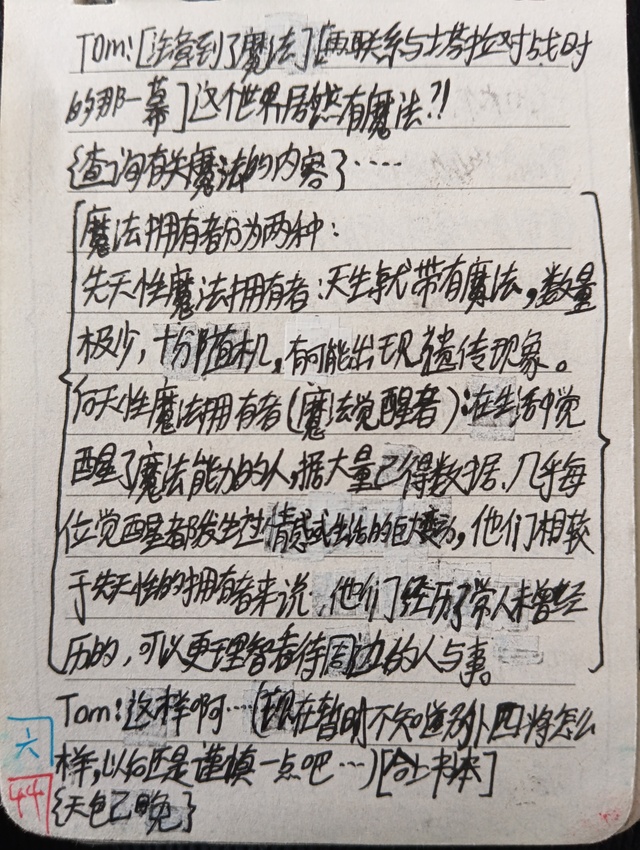 Tom:[注意到了魔法][再联系与士莎拉对战时
的那一幕]这个世界居然有魔法?!
{查询有关魔法的内容}·····
魔法拥有者分为两种:
先天性魔法拥有者:天生就带有魔法,数量
极少,十分随机,有可能出现遗传现象。
后天性魔法拥有者(魔法觉醒者):在生活中觉
醒了魔法能力的人,据大量已得数据、几乎每
位觉醒者都发生过情感或生活的巨大变动,他们相较
于先天性的拥有者来说,他们经历了常人未曾经
历的,可以更理智看待周边的人与事。
Tom:这样啊…(现在暂时不知道另外四将怎么
样,以后还是谨慎一点吧…)[合上书本]
{天色已晚}
六
44